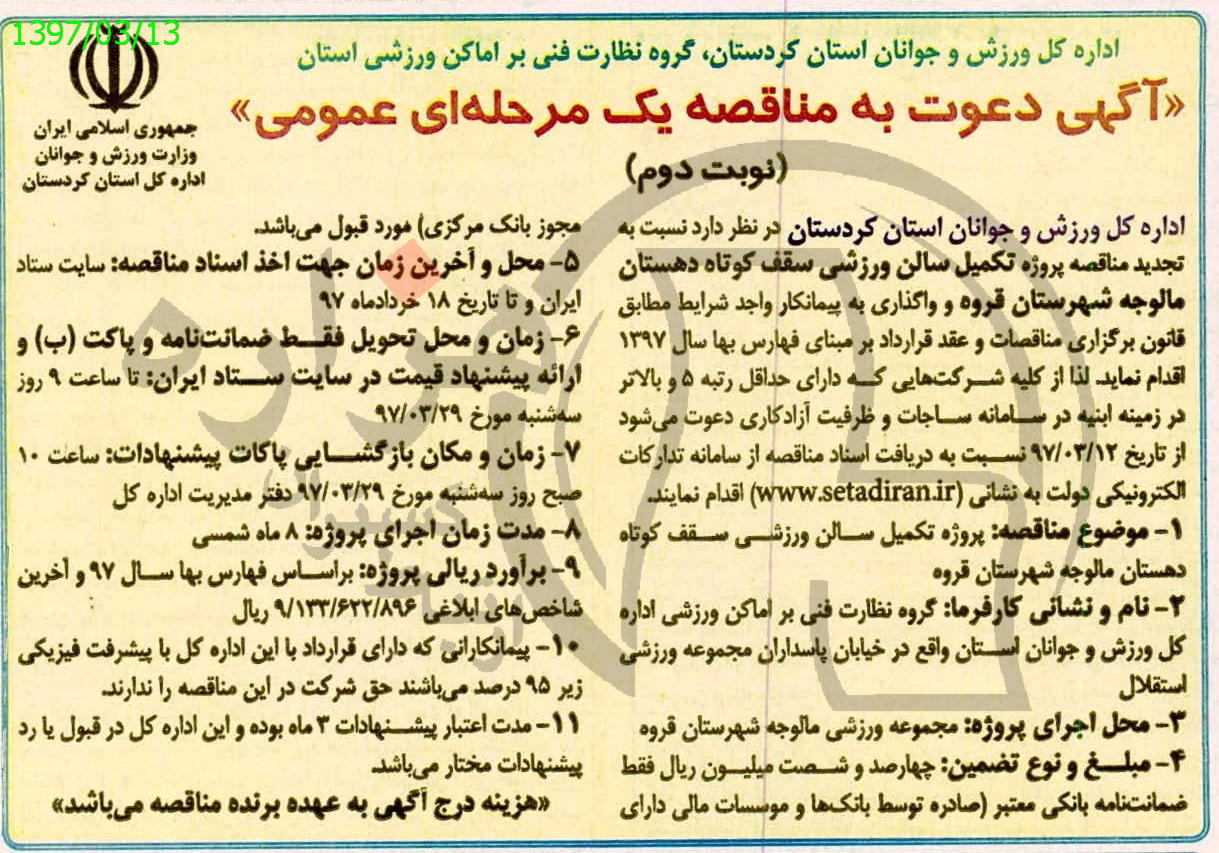 1397/03/13
اداره کل ورزش و جوانان استان کردستان، گروه نظارت فنی بر اماکن ورزشی استان
«آگهی دعوت به مناقصه یک مرحله‌ای عمومی»
(نوبت دوم)
جمهوری اسلامی ایران
وزارت ورزش و جوانان
اداره کل استان کردستان
اداره کل ورزش و جوانان استان کردستان در نظر دارد نسبت به
تجدید مناقصه پروژه تکمیل سالن ورزشی سقف کوتاه دهستان
مالوجه شهرستان قروه و واگذاری به پیمانکار واجد شرایط مطابق
قانون برگزاری مناقصات و عقد قرارداد بر مبنای فهارس بها سال ۱۳۹۷
اقدام نماید. لذا از کلیه شرکت‌هایی که دارای حداقل رتبه ۵ و بالاتر
در زمینه ابنیه در سامانه ساجات و ظرفیت آزادکاری دعوت می‌شود
از تاریخ ۹۷/۰۳/۱۲ نسبت به دریافت اسناد مناقصه از سامانه تدارکات
الکترونیکی دولت به نشانی (www.setadiran.ir) اقدام نمایند.
۱- موضوع مناقصه: پروژه تکمیل سالن ورزشی سقف کوتاه
دهستان مالوجه شهرستان قروه
۲- نام و نشانی کارفرما: گروه نظارت فنی بر اماکن ورزشی اداره
کل ورزش و جوانان استان واقع در خیابان پاسداران مجموعه ورزشی
استقلال
۳- محل اجرای پروژه: مجموعه ورزشی مالوجه شهرستان قروه
۴- مبلغ و نوع تضمین: چهارصد و شصت میلیون ریال فقط
ضمانت‌نامه بانکی معتبر (صادره توسط بانک‌ها و موسسات مالی دارای
مجوز بانک مرکزی) مورد قبول می‌باشد.
۵- محل و آخرین زمان جهت اخذ اسناد مناقصه: سایت ستاد
ایران و تا تاریخ ۱۸ خردادماه ۹۷
۶- زمان و محل تحویل فقط ضمانت‌نامه و پاکت (ب) و
ارائه پیشنهاد قیمت در سایت ستاد ایران: تا ساعت ۹ روز
سه‌شنبه مورخ ۹۷/۰۳/۲۹
۷- زمان و مکان بازگشایی پاکات پیشنهادات: ساعت ۱۰
صبح روز سه‌شنبه مورخ ۹۷/۰۳/۲۹ دفتر مدیریت اداره کل
۸- مدت زمان اجرای پروژه: ۸ ماه شمسی
۹- برآورد ریالی پروژه: براساس فهارس بها سال ۹۷ و آخرین
شاخص‌های ابلاغی ۹/۱۳۳/۶۲۲/۸۹۶ ریال
۱۰- پیمانکارانی که دارای قرارداد با این اداره کل با پیشرفت فیزیکی
زیر ۹۵ درصد می‌باشند حق شرکت در این مناقصه را ندارند.
۱۱- مدت اعتبار پیشنهادات ۳ ماه بوده و این اداره کل در قبول یا رد
پیشنهادات مختار می‌باشد.
«هزینه درج آگهی به عهده برنده مناقصه می‌باشد»